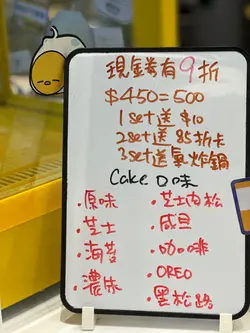 現錢券有9折
$450=500
1set送$10
2set送85折卡
3set送氣炸鍋
Cake口味
·原味
·芝士
·海苔
·芝士肉松
·咸旦
·咖啡
·OREO
·黑松路